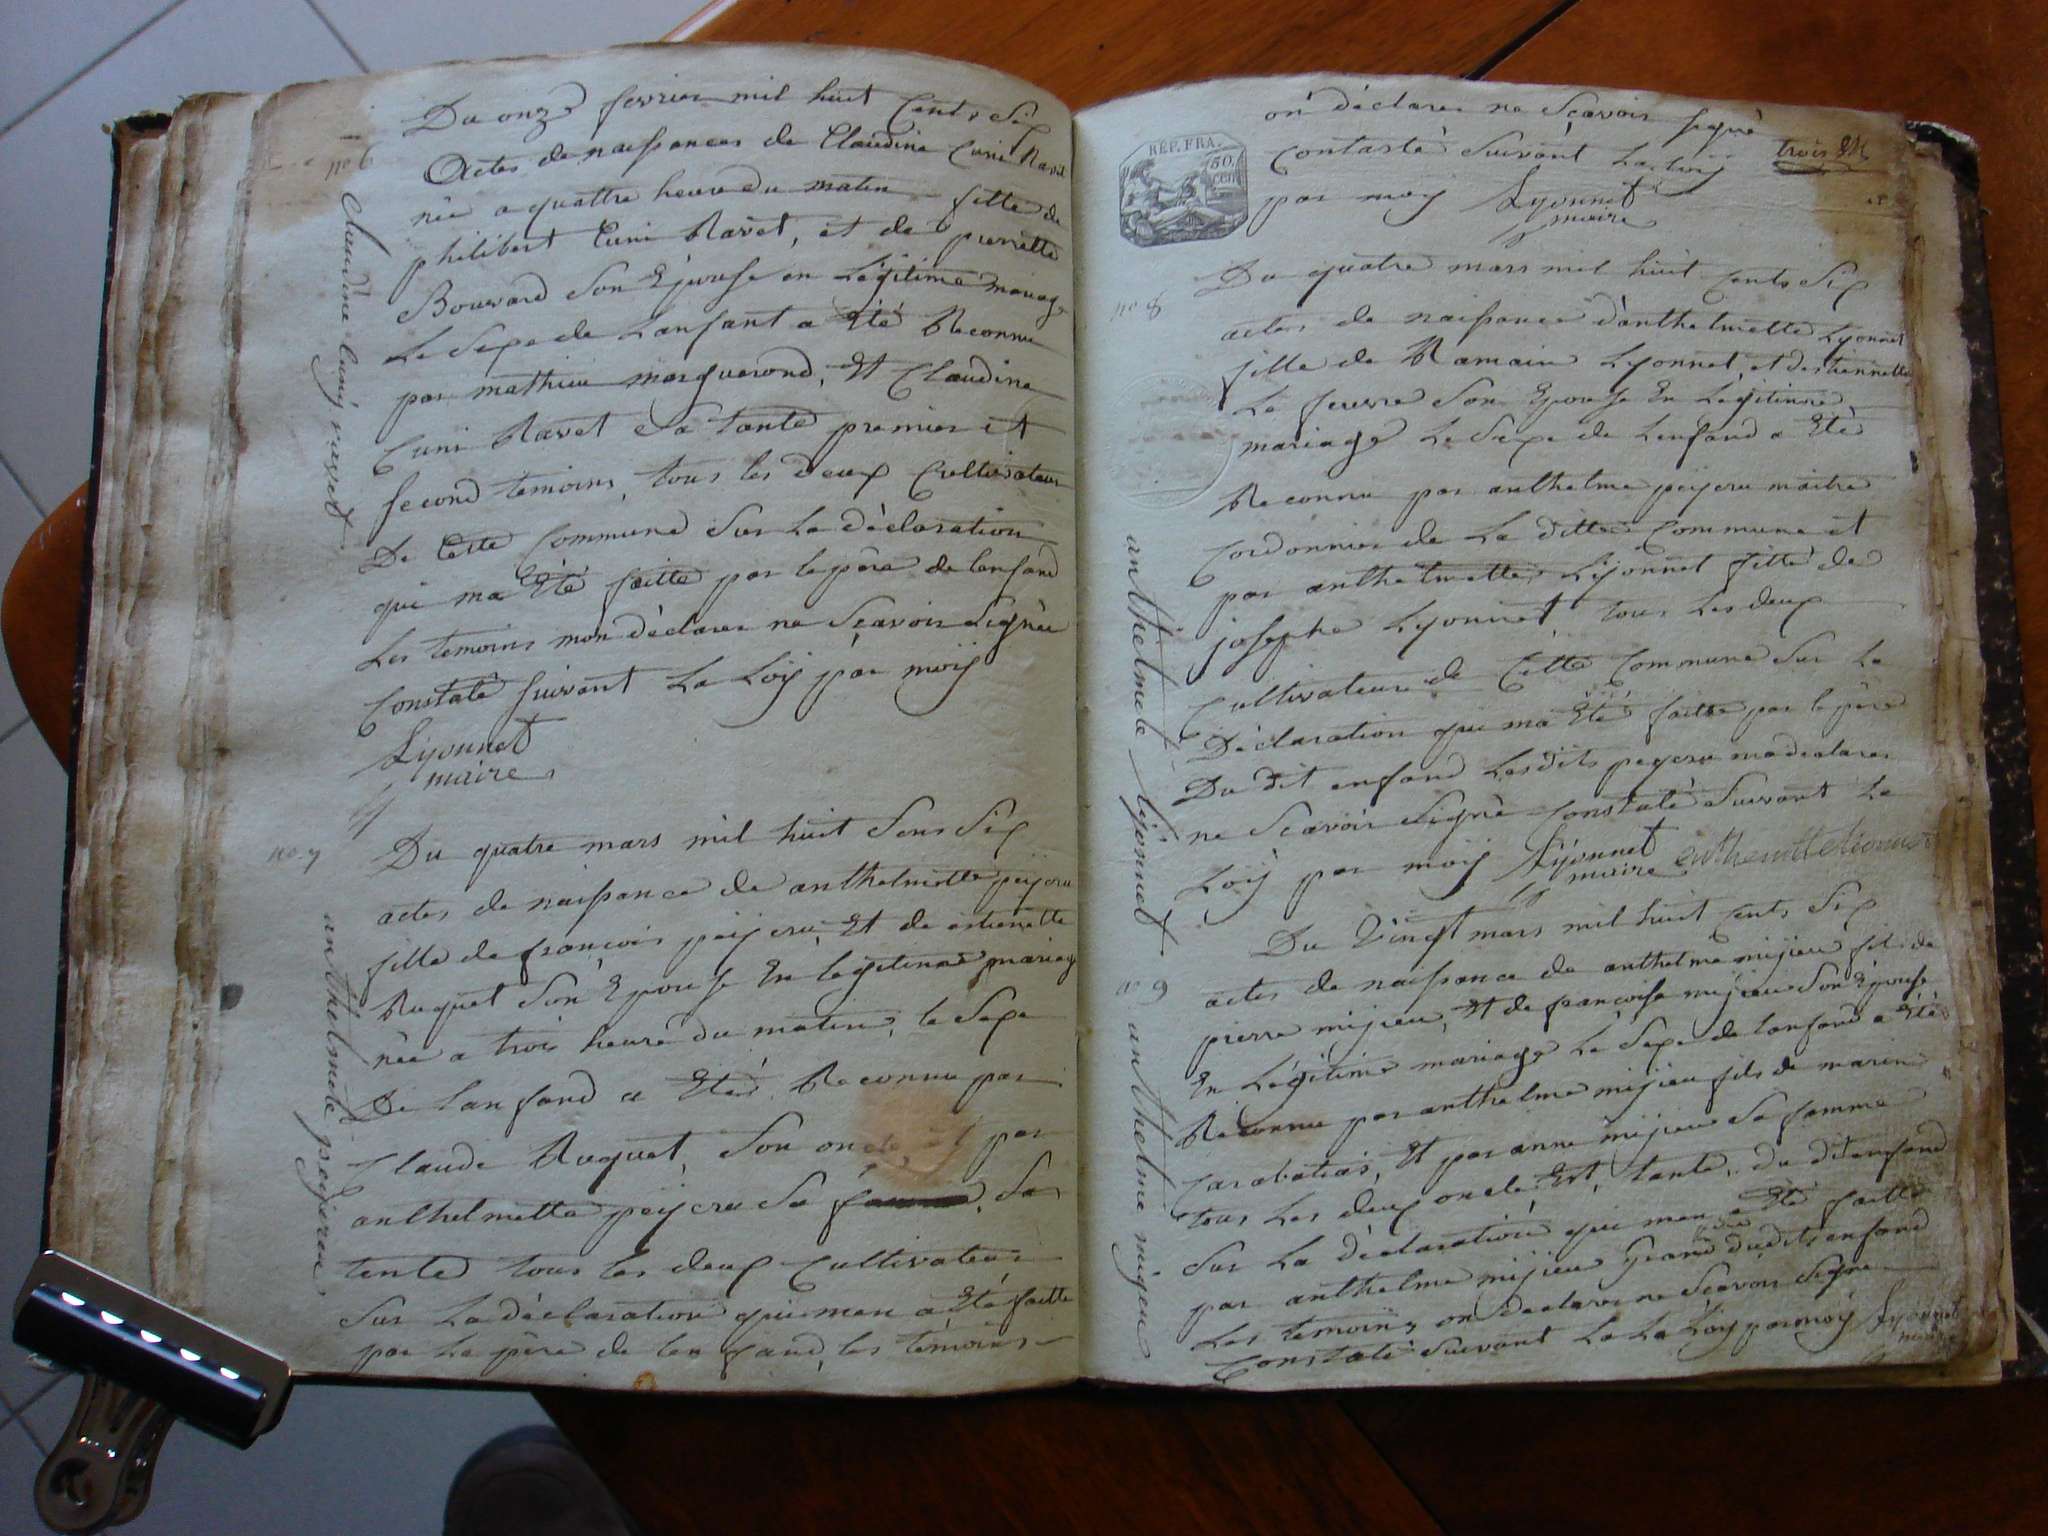 no 6
Claudine Cunÿ ravet
Du onze fevrier mil huit Cents Six
Actes de naissances de Claudine Cuni Ravet
née a quattre heure du matin fille de
philibert Cuni Ravet, et de pierrette
Bouvard Son Epouse en Légitime mariage
Le Sexe de Lanfant a Eté Reconnu
par mathieu marguerond, Et Claudine
Cuni Ravet Sa tante premier et
second temoins, tous les deux Cultivateurs
De Cette Commune Sur La déclaration
qui ma Eté faitte par le père de lenfand
Les temoins mon déclarer ne Scavoir Signée
Constaté suivant La Loÿ par moÿ
Lyonnet
maire
no 7
anthelmete peijcru
Du quatre mars mil huit Sens Six
actes de naissance de anthelmette peijcru
fille de francois peijcru, Et de estienette
Ruquet Son Epouse En legitime mariage
née a trois heure du matin, le Sexe
De Lanfand a Eté Reconnu par
Claude Ruquet, Son oncle, et par
anthelmette peijcru Sa Sa
tente tous les deux Cultivateur
Sur La déclaration qui men a Eté faitte
par Le père de len fand, les témoins
REP. FRA.
50.
cen
on déclarer ne Scavoir signé
Contasté Suivant La loÿ
par moÿ Lyonnet
maire
trois
no 8
anthelmete Lyonnet
Du quatre mars mil huit Cents Six
actes de naissance d'anthelmette Lyonnet
fille de Romain Lyonnet, et destiennette
Le feuvre Son Epouse En Légitimre
mariage Le Sexe de Lenfand a Eté
Reconnu par anthelme peijcru maitre
Cordonnier de La ditte Commune et
par anthelmette Lyonnet fille de
josephe Lyonnet tous Les deux
Cultivateur de Cette Commune Sur La
Déclaration qui ma Eté faitte par le père
Du dit enfand Lesdits peijcru ma declarer
ne Scavoir Signé Constaté Suivant La
Loÿ par moÿ Lyonnet
maire
no 9
anthelme mijeu
Du Vingt mars mil huit Cents Six
actes de naissance de anthelme mijieu fils de
pierre mijieu, Et de françoise mijieu Son Epouse
En Légitime mariage Le Sexe de lanfand a Eté
Reconnu par anthelme mijieu fils de marin
Carabatais, Et par anne mijieu Sa famme
tous Les deux oncle Est, tante, du dit enfand
Sur La déclaration qui men a Eté faitte
par anthelme mijieu Grand du dits enfand
Les temoins on declarer ne Scavoir Signe
Constaté Suivant La La Loÿ par moÿ Lyonnet
maire